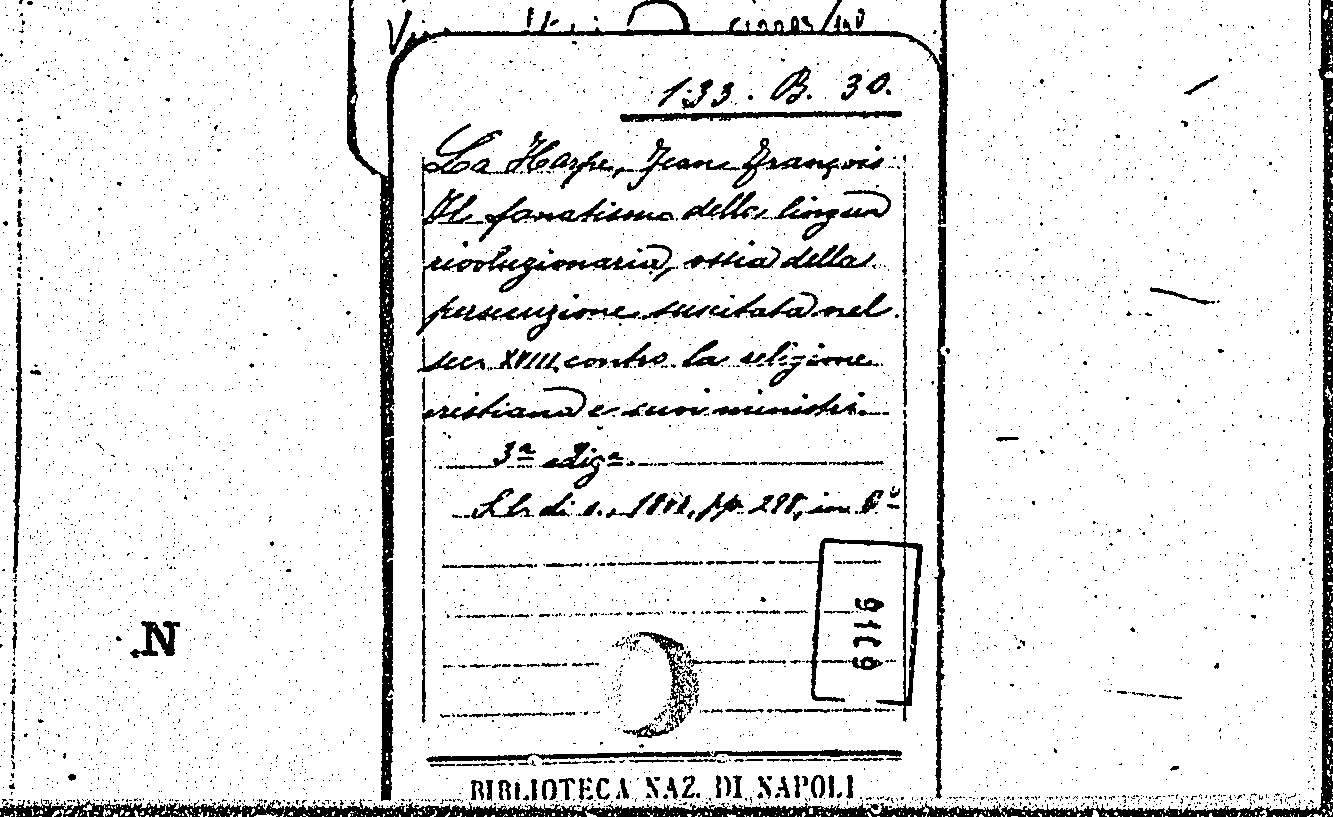 133. B. 30.
La Harpe, Jean François
Il fanatismo della lingua
rivoluzionaria, ossia della
persecuzione suscitata nel
sec. XVIII contro la religione
cristiana e suoi ministri.
3ª ediz.ª
di s., pp. 298, in 8º
N.
BIBLIOTECA NAZ. DI NAPOLI